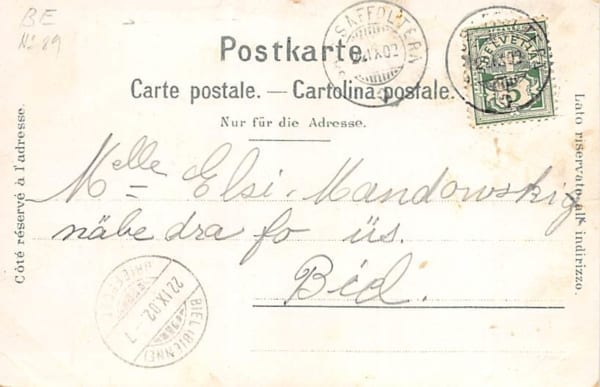 BE
No 89
Postkarte.
Carte postale. — Cartolina postale.
Nur für die Adresse.
Côté réservé à l'adresse.
Lato riservato all' indirizzo.
HELVETIA
5
Melle Elsi Mandowsky
näbe dra fo üs.
Biel.
BIEL (BIENNE)
22.IX.02